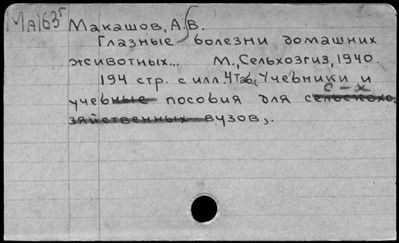 Ма163г
Макашов, А.В.
Глазные болезни домашних
животных... М., Сельхозгиз, 1940.
194 стр. с илл. 4 таб., Учебники и
с-х
учебные пособия для сельскохо-
зяйственных вузов,.